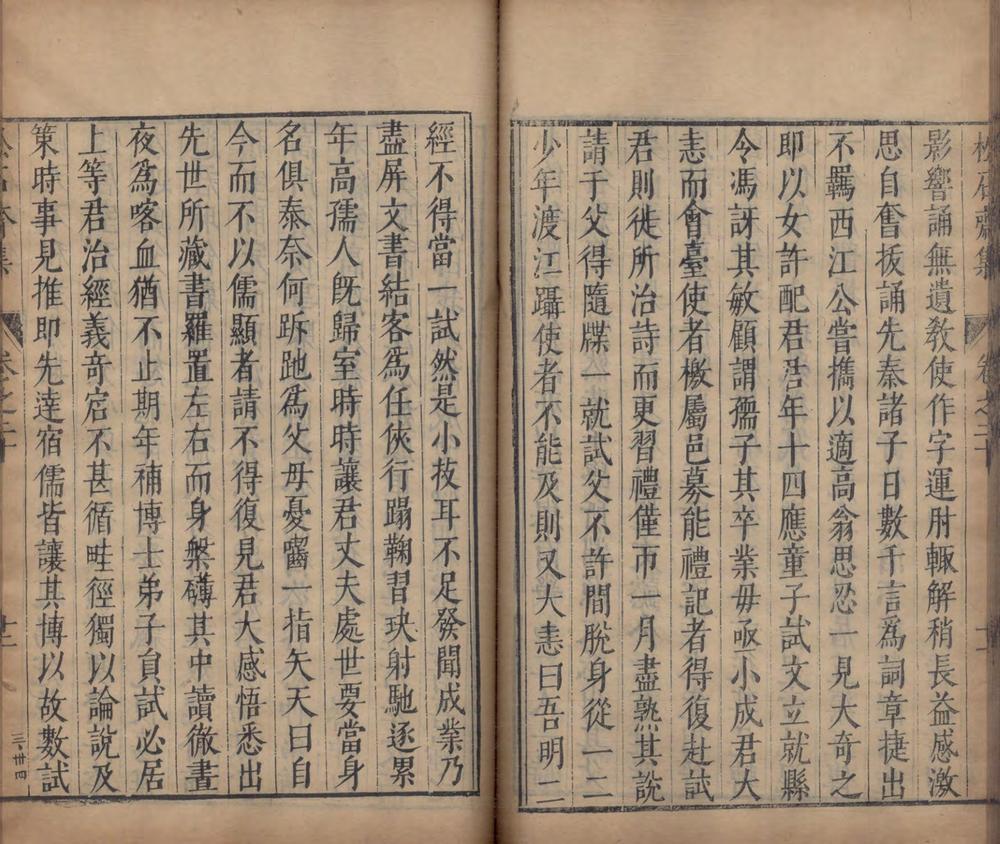 松石齋集 卷之二十 十一
影響誦無遺教使作字運肘輙解稍長益感激
思自奮扳誦先秦諸子日數千言爲詞章捷出
不羈西江公嘗攜以適高翁思忍一見大奇之
即以女許配君君年十四應童子試文立就縣
令馮訝其敏顧謂孺子其卒業毋亟小成君大
恚而會臺使者檄屬邑募能禮記者得復赴試
君則徙所治詩而更習禮僅帀一月盡熟其說
請于父得隨牒一就試父不許間脫身從一二
少年渡江躡使者不能及則又大恚曰吾明二
經不得當一試然是小技耳不足發聞成業乃
盡屏文書結客爲任俠行蹋鞠習玦射馳逐累
年高孺人既歸室時時讓君丈夫處世要當身
名俱泰奈何跅跎爲父毋憂齧一指矢天曰自
今而不以儒顯者請不得復見君大感悟悉出
先世所藏書羅置左右而身槃礴其中讀徹晝
夜爲喀血猶不止期年補博士弟子員試必居
上等君治經義奇宕不甚循畦徑獨以論說及
策時事見推即先達宿儒皆讓其博以故數試
松石齋集 卷之二十 十二
三、卅四